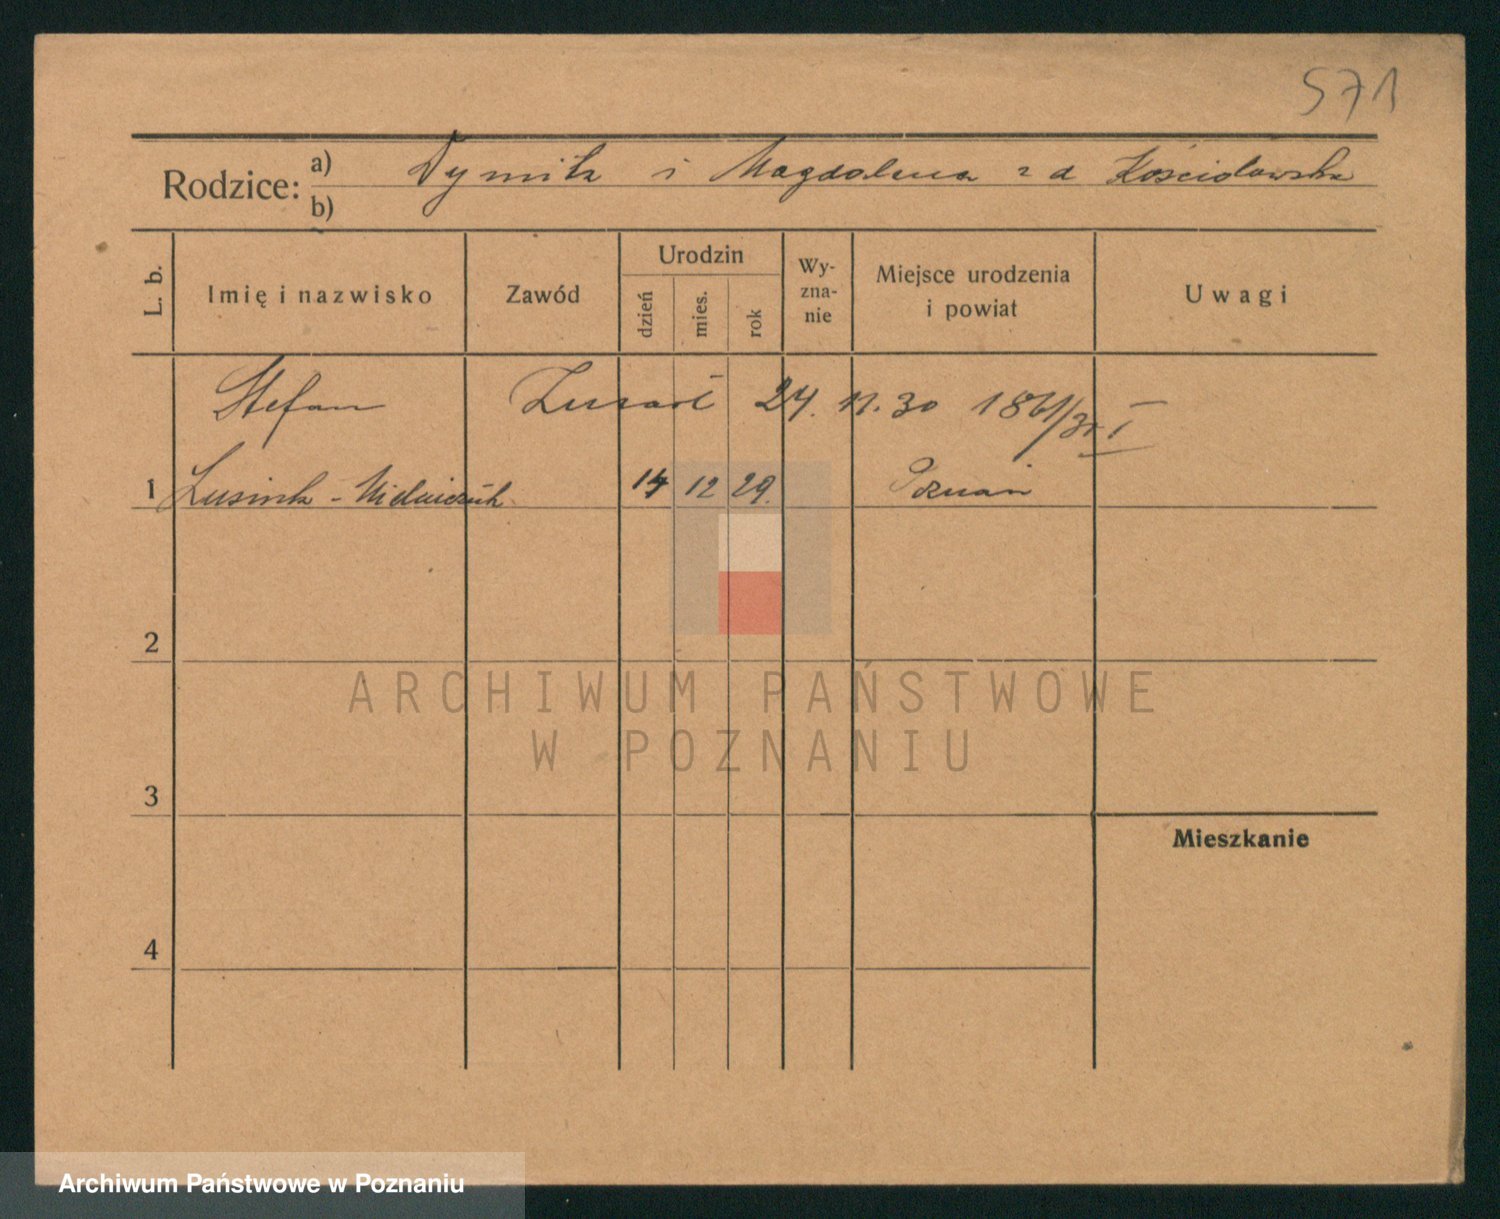 571
Rodzice: a) Dymitr i Magdalena z d
b)
L. b. Imię i nazwisko Zawód Urodzin dzień mies. rok Wy-zna-nie Miejsce urodzenia i powiat Uwagi
Stefan Zmarł 24. 11. 30 1861/30 I
1 14 12 29. Poznań
2
3
Mieszkanie
4
ARCHIWUM PAŃSTWOWE
W POZNANIU
Archiwum Państwowe w Poznaniu